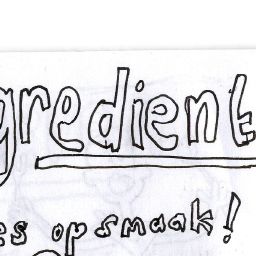 gredient
es op smaak!